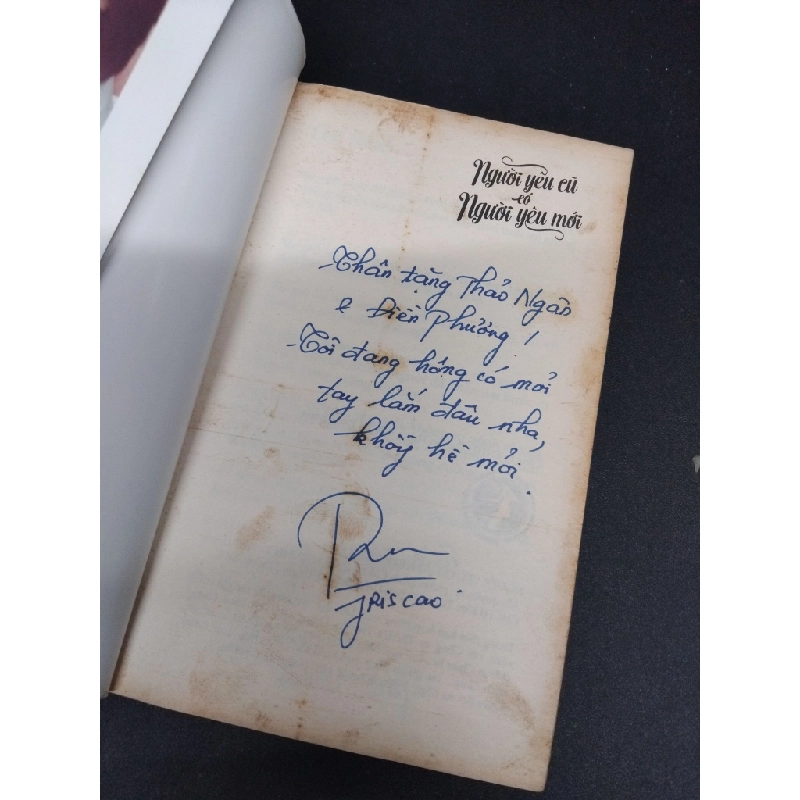 Người yêu cũ
có
Người yêu mới
Thân tặng Thảo Ngân
& Điền Phương!
Tôi đang hông có mỏi
tay lắm đâu nha,
khôg hề mỏi.
Iris cao